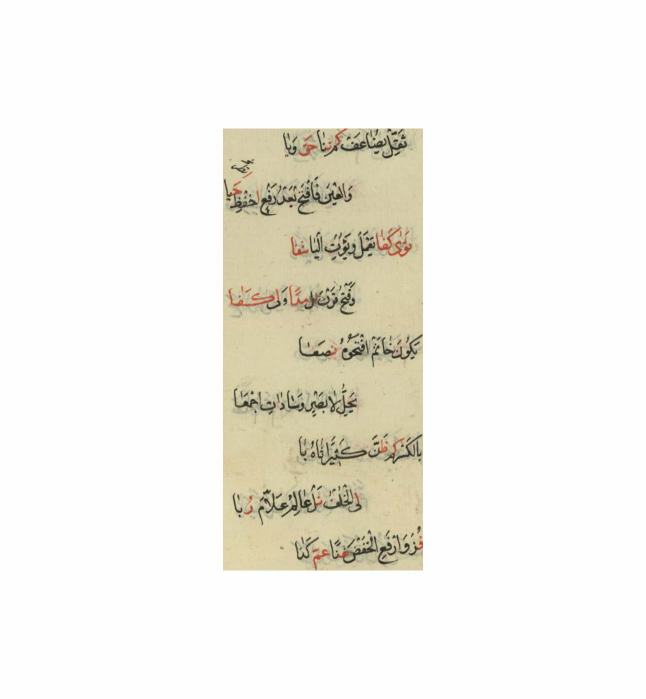 ثَقِّلْ يُضَاعَفْ كَمْ ثَنَا حَقٌّ وَيَا
وَالعَيْنَ فَافْتَحْ بَعْدُ رَفْعٌ احْفَظْ حَيَا
ثَوَى كَفَا يَعْمَلْ وَيُؤْتِ اليَا شَفَا
وَفَتْحُ قَرْنَ نَلْ مَدًا وَلِى كَفَا
يَكُونَ خَاتَمَ افْتَحُوهُ نَصَعَا
يَحِلُّ لَا بَصْرٍ وَسَادَاتِ اجْمَعَا
بِالكَسْرِ كَمْ ظَنَّ كَثِيرًا ثَاهُ بَا
لِى الخُلْفُ نَلْ عَالِمِ عَلَّامِ رُبَا
فُزْ وَارْفَعِ الخَفْضَ غِنًا عَمَّ كَذَا